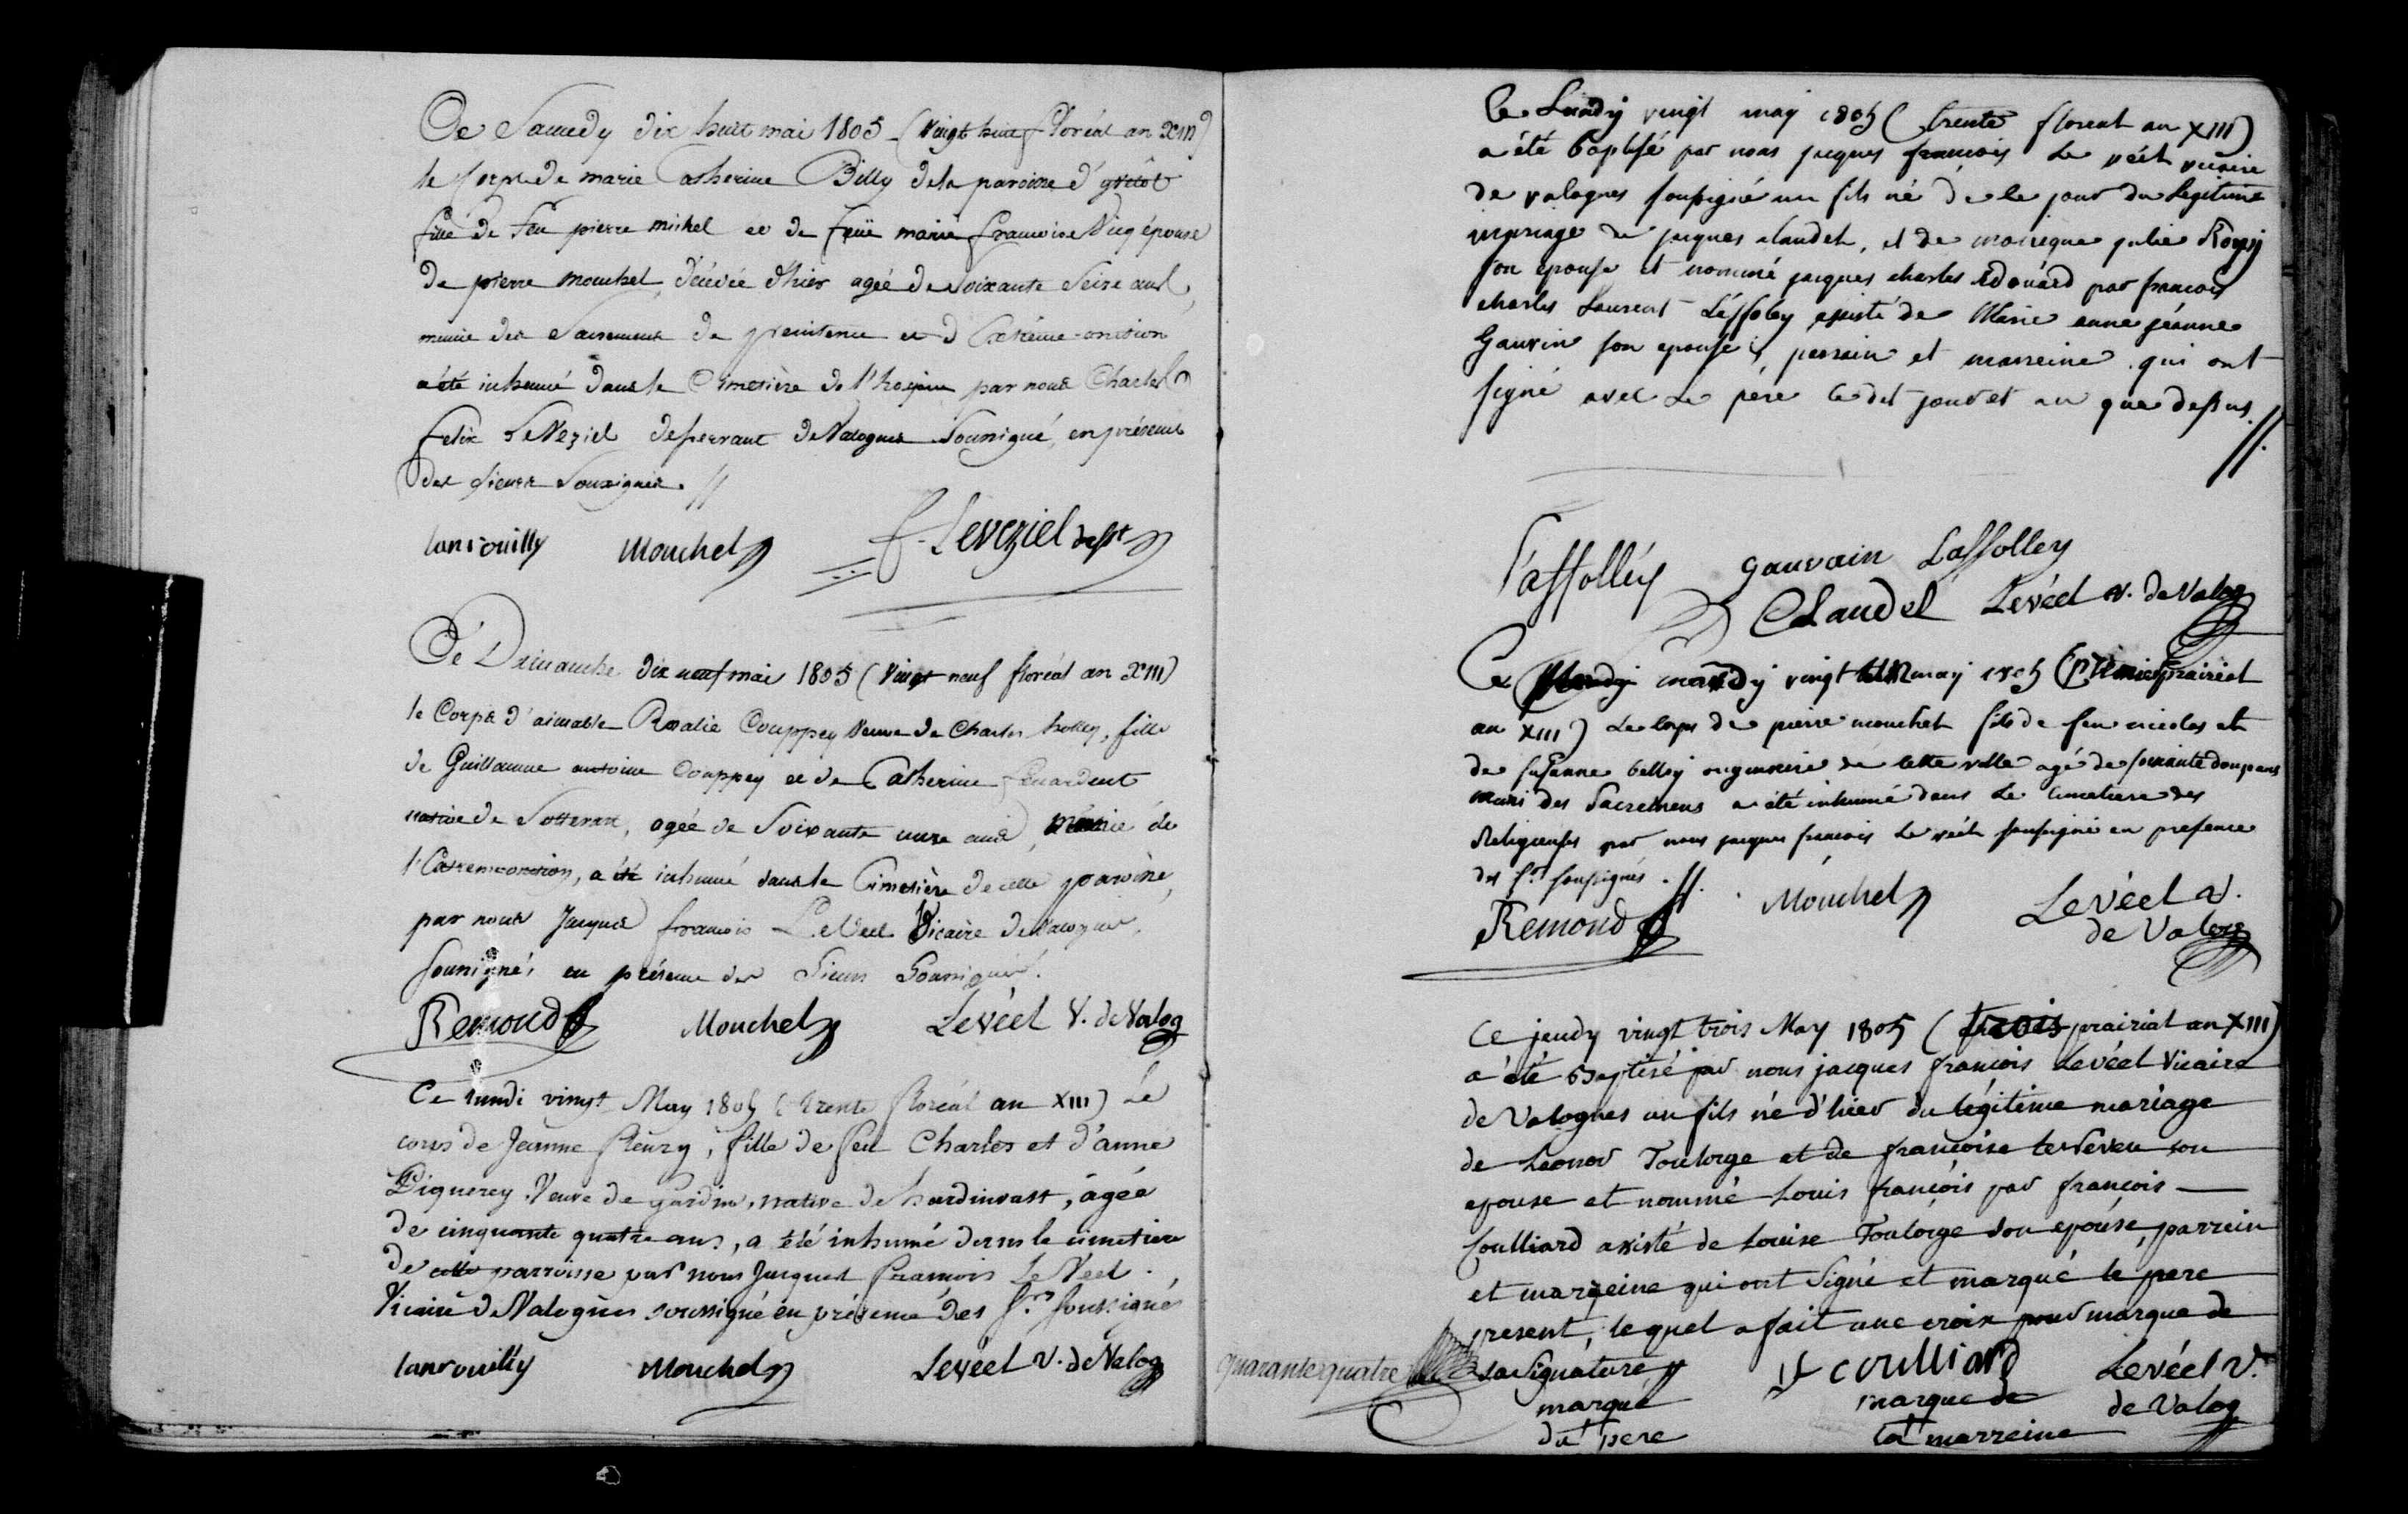 Ce Samedy dix huit mai 1805 (vingt huit floréal an XIII)
le corps de marie Catherine Billy dela paroisse d'yvetôt
fille de feu pierre michel et de feüe marie francoise Vicq épouse
de pierre mouchel décédée d'hier agée de soixante Seize ans,
munie des Sacremens de penitence et d'Extrême-onction
a été inhumé dans le Cimetière de l'hospice par nous Charles
felix LeVeziel desservant de Valognes Soussigné, en présence
des sieurs Soussignés. //
lanrouilly Mouchel f. Leveziel desst
Ce Dimanche dix neuf mai 1805 (Vingt neuf floréal an XIII)
le Corps d'aimable Rosalie Couppey Veuve de Charles holley, fille
de Guillaume antoine Couppey et de Catherine Lenardeut
native de Sottevast, agée de Soixante onze ans, munie de
l'Extremeonction, a été inhumé dans le Cimetière de cette paroisse,
par nous Jacques francois LeVéel Vicaire de Valognes,
soussigné, en présence des Sieurs Soussignés.
Remond Mouchel Levéel V. de Valog
Ce lundi vingt May 1805 (trente floréal an XIII) Le
corps de Jeanne fleury, fille de feu Charles et d'anne
Diguerey Veuve de gardin, native de hardinvast, âgée
de cinquante quatre ans, a été inhumé dans le cimetiere
de cette parroisse par nous Jacques François Le Véel.
Vicaire de Valognes soussigné en présence des Srs soussignés
lanrouilly Mouchel Levéel V. de Valog
Ce Lundy vingt may 1805 (trente floreal an XIII)
a été baptisé par nous jacques francois Le véel vicaire
de valognes soussigné un fils né de ce jour du legitime
mariage de jacques claudel, et de monique julie Roxy
son epouse et nommé jacques charles édouard par francois
charles Laurent Laffoley assisté de Marie anne jéanne
Gauvin son epouse, parrain et marreine qui ont
signé avec Le pere ce dit jour et an que dessus. //
Laffolley gauvain Laffolley
Claudel Levéel v. de Valog
Ce mardy vingt un may 1805 (premier prairial
an XIII) Le corps de pierre mouchel fils de feu nicolas et
de susanne belley originaire de cette ville agé de soixante douze ans
muni des Sacremens a été inhumé dans Le cimetiere des
Religieuses par nous jacques francois Le véel soussigné en presence
des Srs soussignés. //.
Remond Mouchel Levéel v.
de Valog
Ce jeudy vingt trois May 1805 (trois prairial an XIII)
a été Baptisé par nous jacques françois Levéel Vicaire
de Valognes un fils né d'hier du légitime mariage
de Leonor Toulorge et de françoise leneveu son
epouse et nommé Louis françois par françois
Coulliard assisté de Louise Toulorge son epouse, parrein
et marreine qui ont Signé et marqué le pere
present, lequel a fait une croix pour marque de
quarante quatre sa Signature // f coulliard Levéel V.
marque marque de de Valog
du pere la marreine